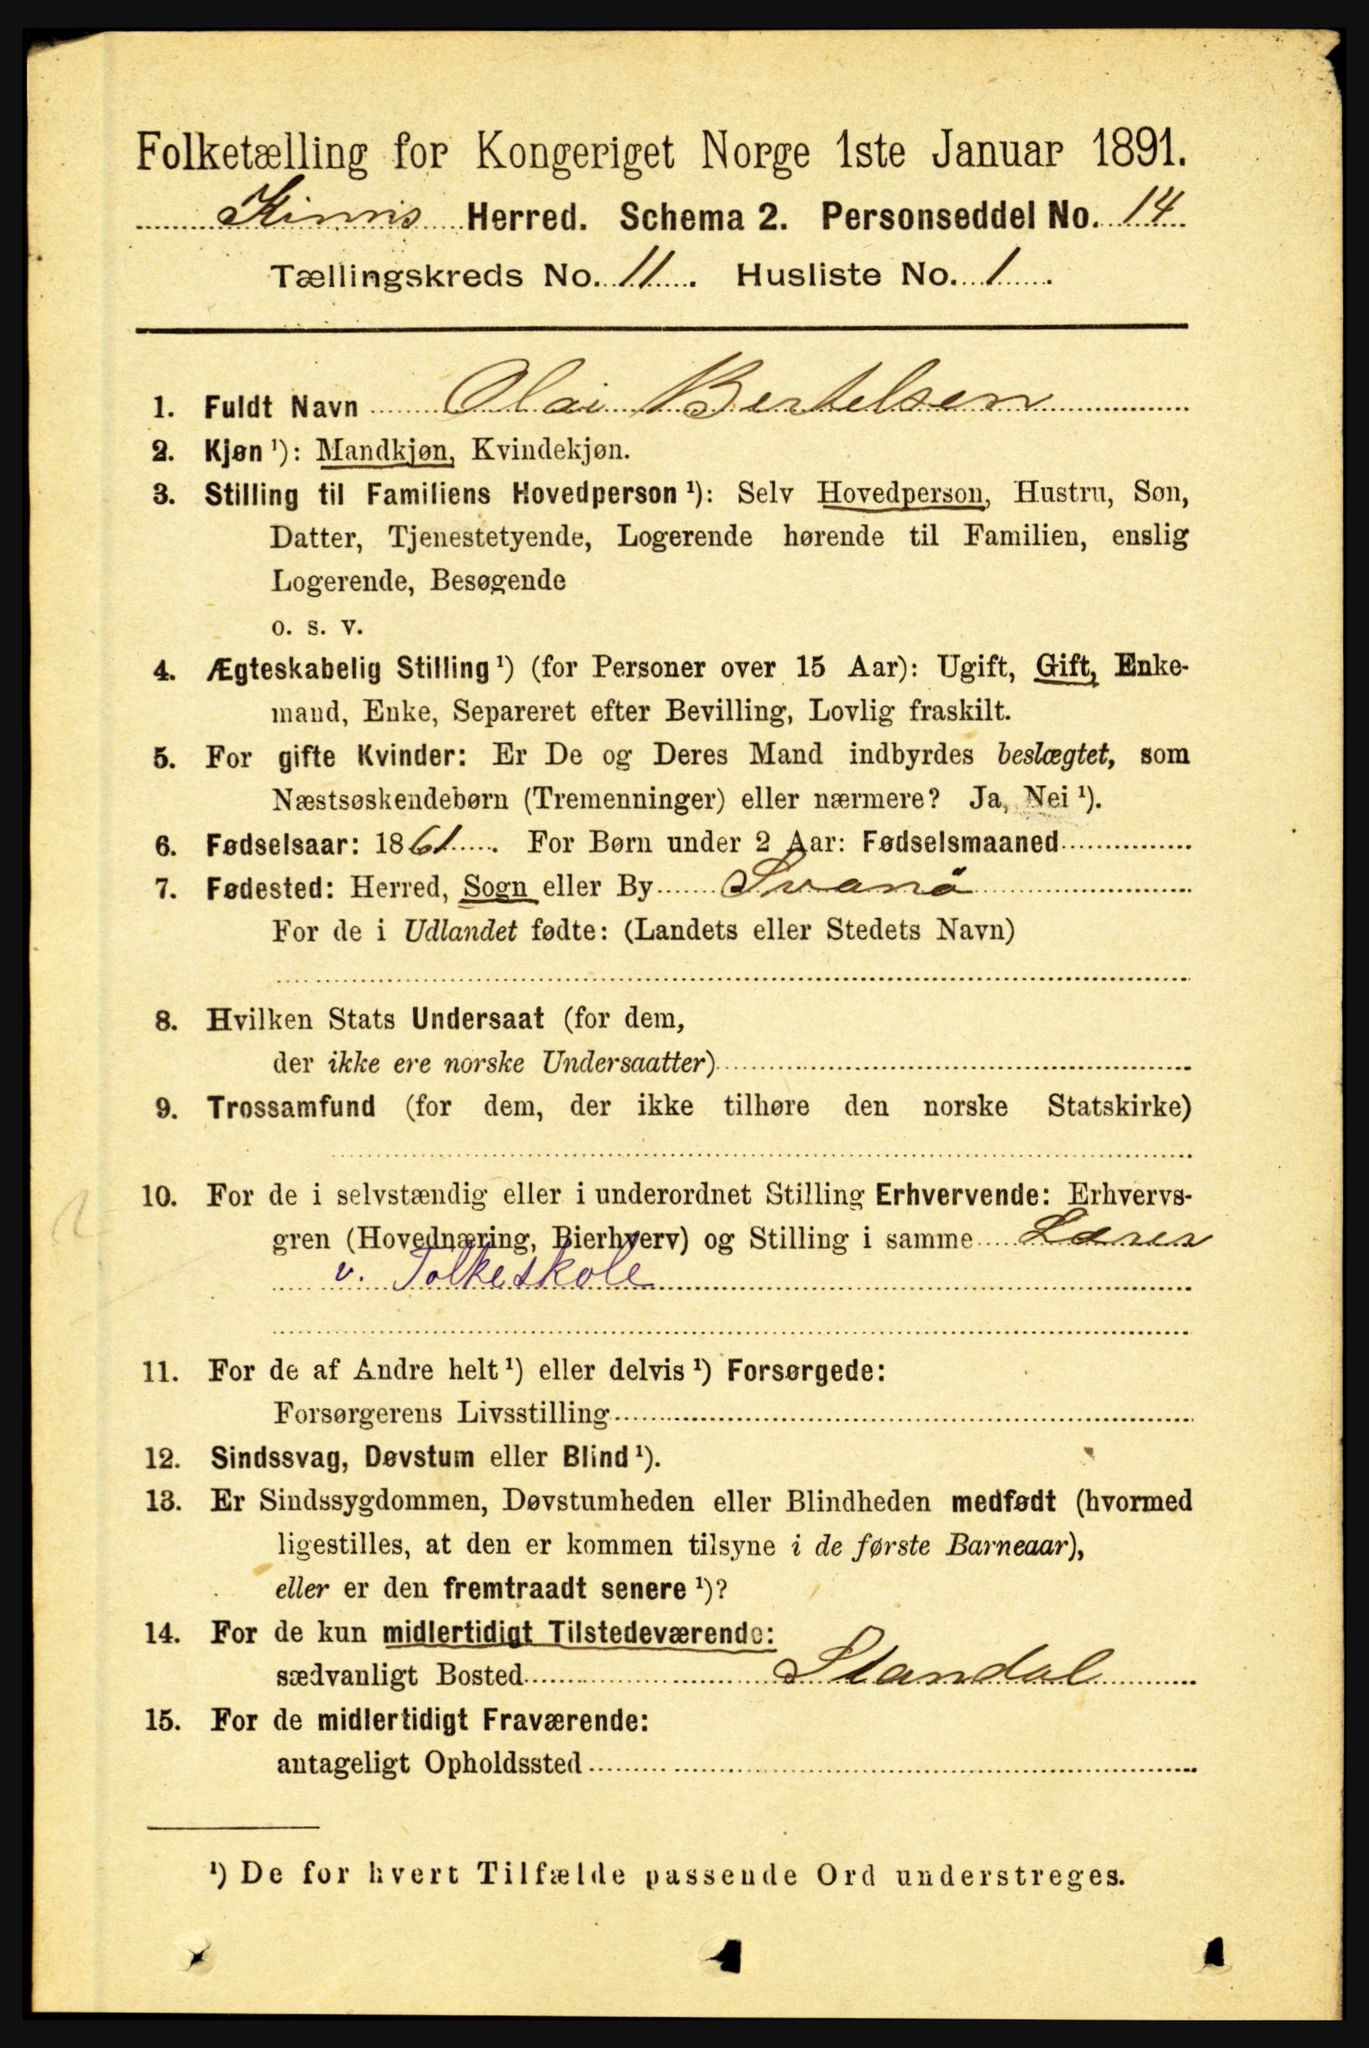 Folketælling for Kongeriget Norge 1ste Januar 1891.
Kinns Herred. Schema 2. Personseddel No. 14
Tællingskreds No. 11. Husliste No. 1.
1. Fuldt Navn Olai Bertelsen
2. Kjøn ¹): Mandkjøn, Kvindekjøn.
3. Stilling til Familiens Hovedperson ¹): Selv Hovedperson, Hustru, Søn,
Datter, Tjenestetyende, Logerende hørende til Familien, enslig
Logerende, Besøgende
o. s. v.
4. Ægteskabelig Stilling ¹) (for Personer over 15 Aar): Ugift, Gift, Enke-
mand, Enke, Separeret efter Bevilling, Lovlig fraskilt.
5. For gifte Kvinder: Er De og Deres Mand indbyrdes beslægtet, som
Næstsøskendebørn (Tremenninger) eller nærmere? Ja, Nei ¹).
6. Fødselsaar: 1861. For Børn under 2 Aar: Fødselsmaaned
7. Fødested: Herred, Sogn eller By Svanö
For de i Udlandet fødte: (Landets eller Stedets Navn)
8. Hvilken Stats Undersaat (for dem,
der ikke ere norske Undersaatter)
9. Trossamfund (for dem, der ikke tilhøre den norske Statskirke)
10. For de i selvstændig eller i underordnet Stilling Erhvervende: Erhvervs-
gren (Hovednæring, Bierhverv) og Stilling i samme Lærer
v. Folkeskole
11. For de af Andre helt ¹) eller delvis ¹) Forsørgede:
Forsørgerens Livsstilling
12. Sindssvag, Døvstum eller Blind ¹).
13. Er Sindssygdommen, Døvstumheden eller Blindheden medfødt (hvormed
ligestilles, at den er kommen tilsyne i de første Barneaar),
eller er den fremtraadt senere ¹)?
14. For de kun midlertidigt Tilstedeværende:
sædvanligt Bosted Standal
15. For de midlertidigt Fraværende:
antageligt Opholdssted
¹) De for hvert Tilfælde passende Ord understreges.